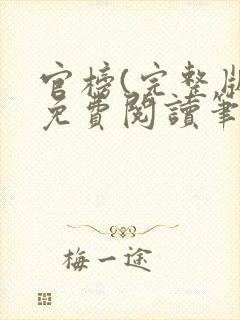 官榜(完整版
免費閱讀筆
梅一途